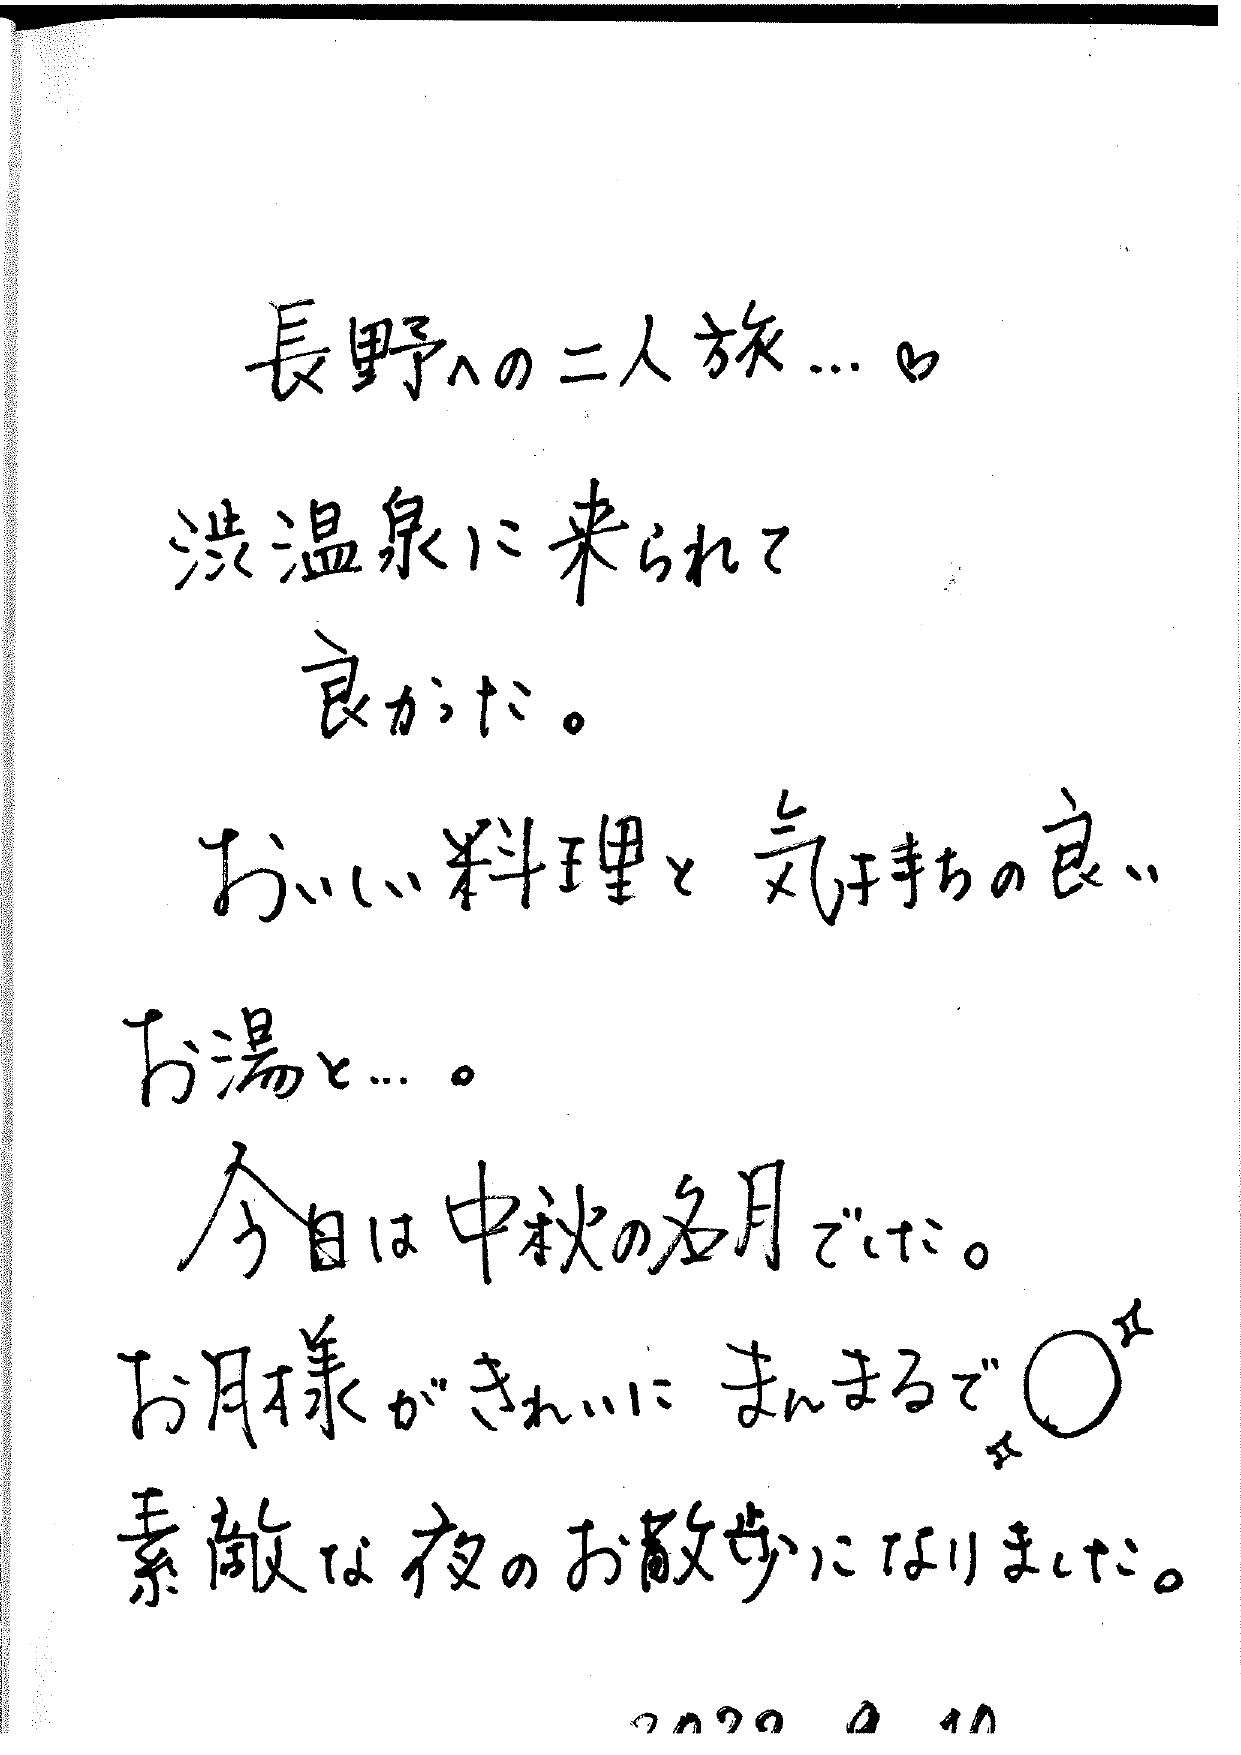 長野への二人旅…♡
渋温泉に来られて
良かった。
おいしい料理と気持ちの良い
お湯と…。
今日は中秋の名月でした。
お月様がきれいにまんまるで
素敵な夜のお散歩になりました。